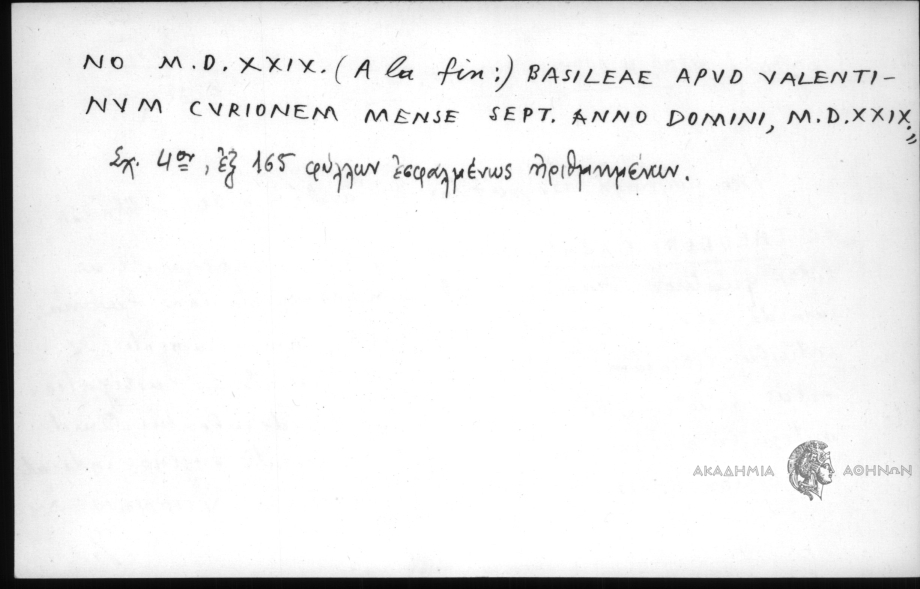 NO M.D.XXIX. (A la fin:) BASILEAE APVD VALENTI-
NVM CVRIONEM MENSE SEPT. ANNO DOMINI, M.D.XXIX.»
Σχ. 4ον, ἐξ 165 φύλλων ἐσφαλμένως ἠριθμημένων.
ΑΚΑΔΗΜΙΑ ΑΘΗΝΩΝ